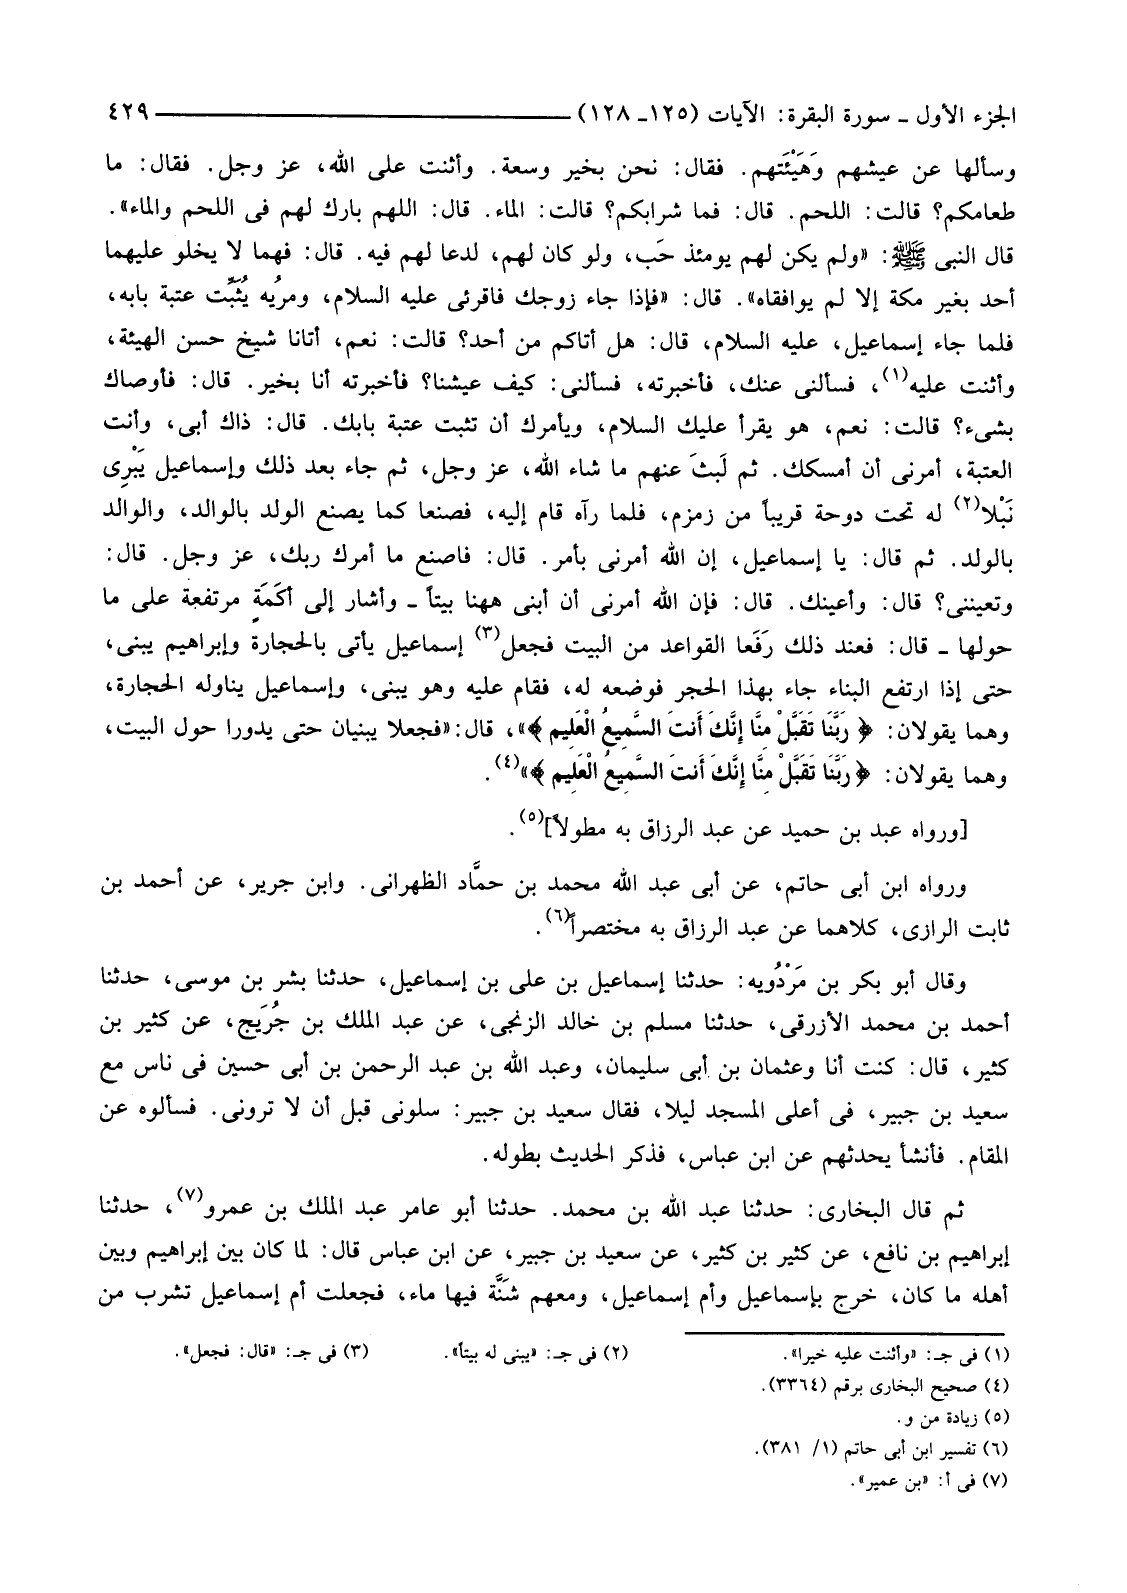 الجزء الأول ـ سورة البقرة: الآيات (١٢٥ـ ١٢٨) ٤٢٩
وسألها عن عيشهم وَهَيْئَتهم. فقال: نحن بخير وسعة. وأثنت على الله، عز وجل. فقال: ما
طعامكم؟ قالت: اللحم. قال: فما شرابكم؟ قالت: الماء. قال: اللهم بارك لهم فى اللحم والماء».
قال النبى ﷺ: «ولم يكن لهم يومئذ حَب، ولو كان لهم، لدعا لهم فيه. قال: فهما لا يخلو عليهما
أحد بغير مكة إلا لم يوافقاه». قال: «فإذا جاء زوجك فاقرئى عليه السلام، ومرُيه يُثَبِّت عتبة بابه،
فلما جاء إسماعيل، عليه السلام، قال: هل أتاكم من أحد؟ قالت: نعم، أتانا شيخ حسن الهيئة،
وأثنت عليه(١)، فسألنى عنك، فأخبرته، فسألنى: كيف عيشنا؟ فأخبرته أنا بخير. قال: فأوصاك
بشىء؟ قالت: نعم، هو يقرأ عليك السلام، ويأمرك أن تثبت عتبة بابك. قال: ذاك أبى، وأنت
العتبة، أمرنى أن أمسكك. ثم لَبِثَ عنهم ما شاء الله، عز وجل، ثم جاء بعد ذلك وإسماعيل يَبْرِى
نَبْلا(٢) له تحت دوحة قريباً من زمزم، فلما رآه قام إليه، فصنعا كما يصنع الولد بالوالد، والوالد
بالولد. ثم قال: يا إسماعيل، إن الله أمرنى بأمر. قال: فاصنع ما أمرك ربك، عز وجل. قال:
وتعيننى؟ قال: وأعينك. قال: فإن الله أمرنى أن أبنى ههنا بيتاً ـ وأشار إلى أكَمَةٍ مرتفعة على ما
حولها ـ قال: فعند ذلك رَفَعا القواعد من البيت فجعل(٣) إسماعيل يأتى بالحجارة وإبراهيم يبنى،
حتى إذا ارتفع البناء جاء بهذا الحجر فوضعه له، فقام عليه وهو يبنى، وإسماعيل يناوله الحجارة،
وهما يقولان: ﴿ رَبَّنَا تَقَبَّلْ مِنَّا إِنَّكَ أَنتَ السَّمِيعُ الْعَلِيم ﴾»، قال:«فجعلا يبنيان حتى يدورا حول البيت،
وهما يقولان: ﴿ رَبَّنَا تَقَبَّلْ مِنَّا إِنَّكَ أَنتَ السَّمِيعُ الْعَلِيم ﴾»(٤).
[ورواه عبد بن حميد عن عبد الرزاق به مطولاً](٥).
ورواه ابن أبى حاتم، عن أبى عبد الله محمد بن حمَّاد الظهرانى. وابن جرير، عن أحمد بن
ثابت الرازى، كلاهما عن عبد الرزاق به مختصراً(٦).
وقال أبو بكر بن مَرْدُويه: حدثنا إسماعيل بن على بن إسماعيل، حدثنا بشر بن موسى، حدثنا
أحمد بن محمد الأزرقى، حدثنا مسلم بن خالد الزنجى، عن عبد الملك بن جُرَيج، عن كثير بن
كثير، قال: كنت أنا وعثمان بن أبى سليمان، وعبد الله بن عبد الرحمن بن أبى حسين فى ناس مع
سعيد بن جبير، فى أعلى المسجد ليلا، فقال سعيد بن جبير: سلونى قبل أن لا ترونى. فسألوه عن
المقام. فأنشأ يحدثهم عن ابن عباس، فذكر الحديث بطوله.
ثم قال البخارى: حدثنا عبد الله بن محمد. حدثنا أبو عامر عبد الملك بن عمرو(٧)، حدثنا
إبراهيم بن نافع، عن كثير بن كثير، عن سعيد بن جبير، عن ابن عباس قال: لما كان بين إبراهيم وبين
أهله ما كان، خرج بإسماعيل وأم إسماعيل، ومعهم شَنَّة فيها ماء، فجعلت أم إسماعيل تشرب من
(١) فى جـ: «وأثنت عليه خيرا». (٢) فى جـ: «يبنى له بيتاً». (٣) فى جـ: «قال: فجعل».
(٤) صحيح البخارى برقم (٣٣٦٤).
(٥) زيادة من و.
(٦) تفسير ابن أبى حاتم (١/ ٣٨١).
(٧) فى أ: «بن عمير».